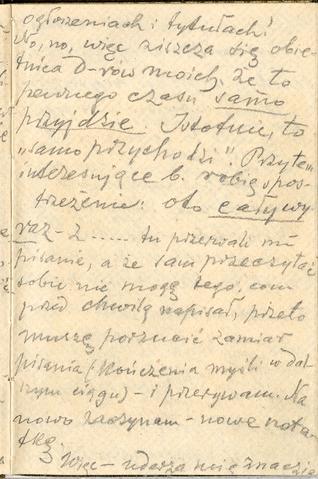 ogłoszeniach i tytułach!
No, no, więc ziszcza się obie-
tnica D-rów moich, że to
pewnego czasu samo
przyjdzie Istotnie, to
„samo przychodzi". Przytem
interesujące b. robię spos-
trzeżenie: oto cały wy-
raz - z ..... tu przerwali mi
pisanie, a że sam przeczytać
sobie nie mogę tego, com
przed chwilą napisał, przeto
muszę porzucić zamiar
pisania (kończenia myśli w dal-
szym ciągu) - i przerywam. Na
nowo zaczynam - nowe nota-
tkę.
Więc - uderza mię znacznie